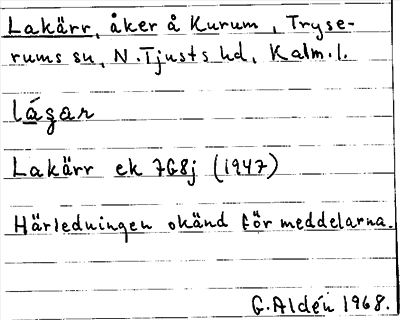 Lakärr, åker å Kurum, Tryse-
rums sn, N. Tjusts hd, Kalm. l.
lágar
Lakärr ek 7G8j (1947)
Härledningen okänd för meddelarna.
G. Aldén 1968.